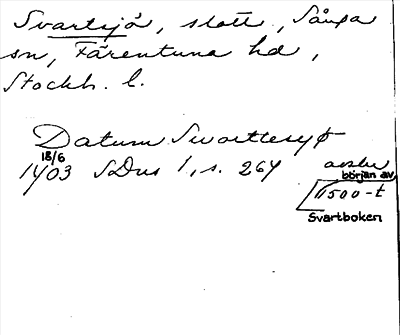 Svartsjö, slott, Sånga
sn, Färentuna hd,
Stockh. l.
Datum Swarttesyø
18/6
1403 SDns 1, s. 264 avskr
början av
1500-t
Svartboken